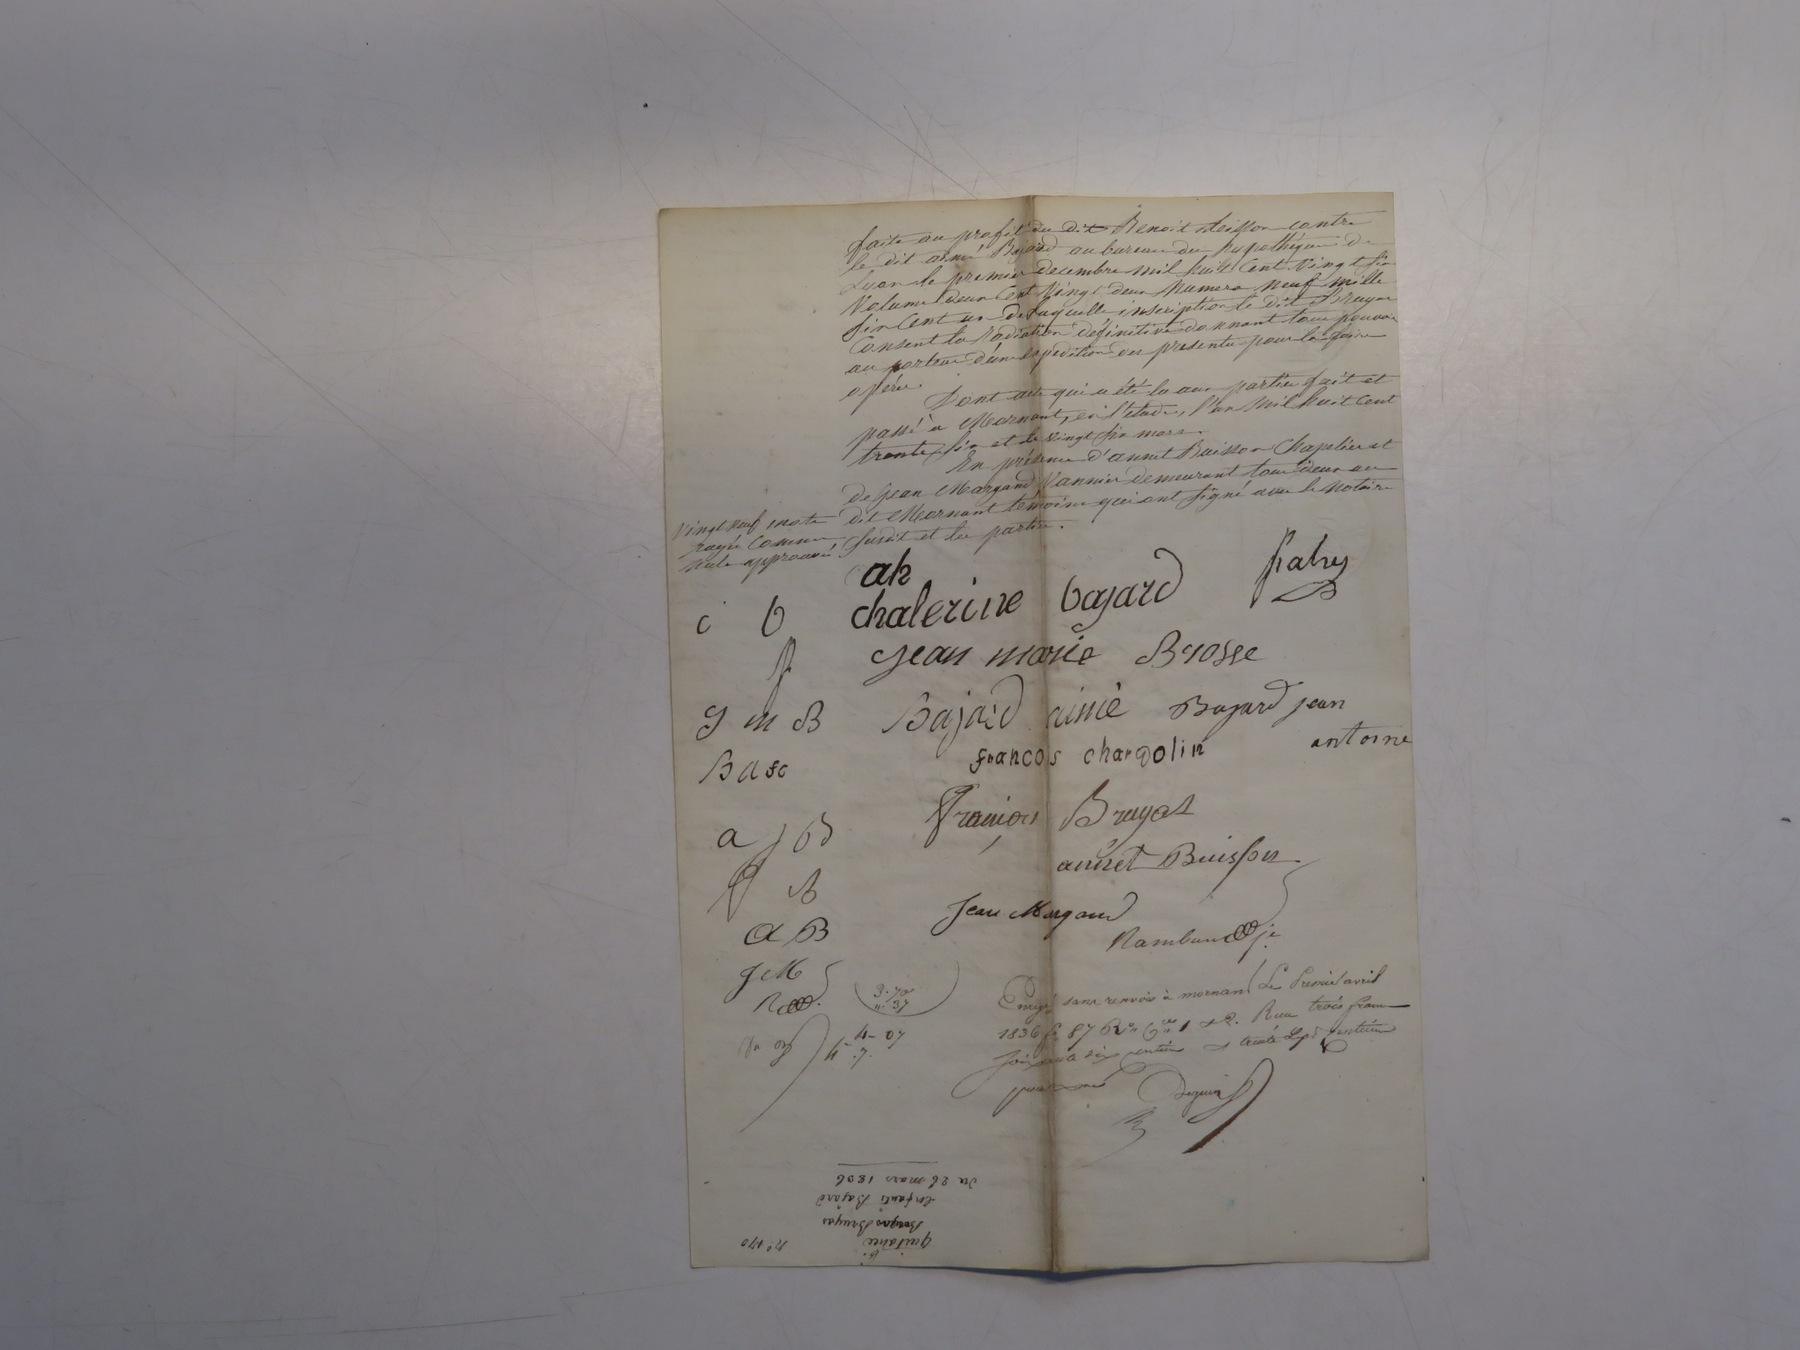 faite au profit du dit Benoit Steisson contre
le dit aimé Bajard au bureau des hypothèques de
Lyon le premier decembre mil huit Cent Vingt six
Volume deux Cent Vingt deux Numero neuf mille
six Cent un de laquelle inscription le dit Bruyas
Consent la Radiation définitive donnant tous pouvoirs
au porteur d'une expedition des presentes pour la faire
opérer.
Dont acte qui a été lu aux parties fait et
passé a Mornant, en l'étude, l'an Mil huit Cent
trente six et le vingt six mars.
En présence d'annet Buisson Chapelier et
de Jean Margand Vannier demeurant tous deux au
dit Mornant temoins qui ont signé avec le Notaire
susdit et les parties.
Vingt neuf mots
rayés comme
nuls approuvé
ah
chalerine bajard
c b
jean marie Brosse
J m B
Bajard aimé Bajard jean
antoine
B a fc
francois chargolin
a j B
François Bruyas
annet Buisson
B
Jean Margand
a B
Rambaud je
J M
3-70
"-37
4-07
Enregé sans renvois à mornant Le Premier avril
1836 fo 87 Ro Ces 1 et 2. Reçu trois francs
soixante dix centimes et trente sept centimes
pour
No 170
quitance
Bruyas
Enfants Bajard
du 26 mars 1836